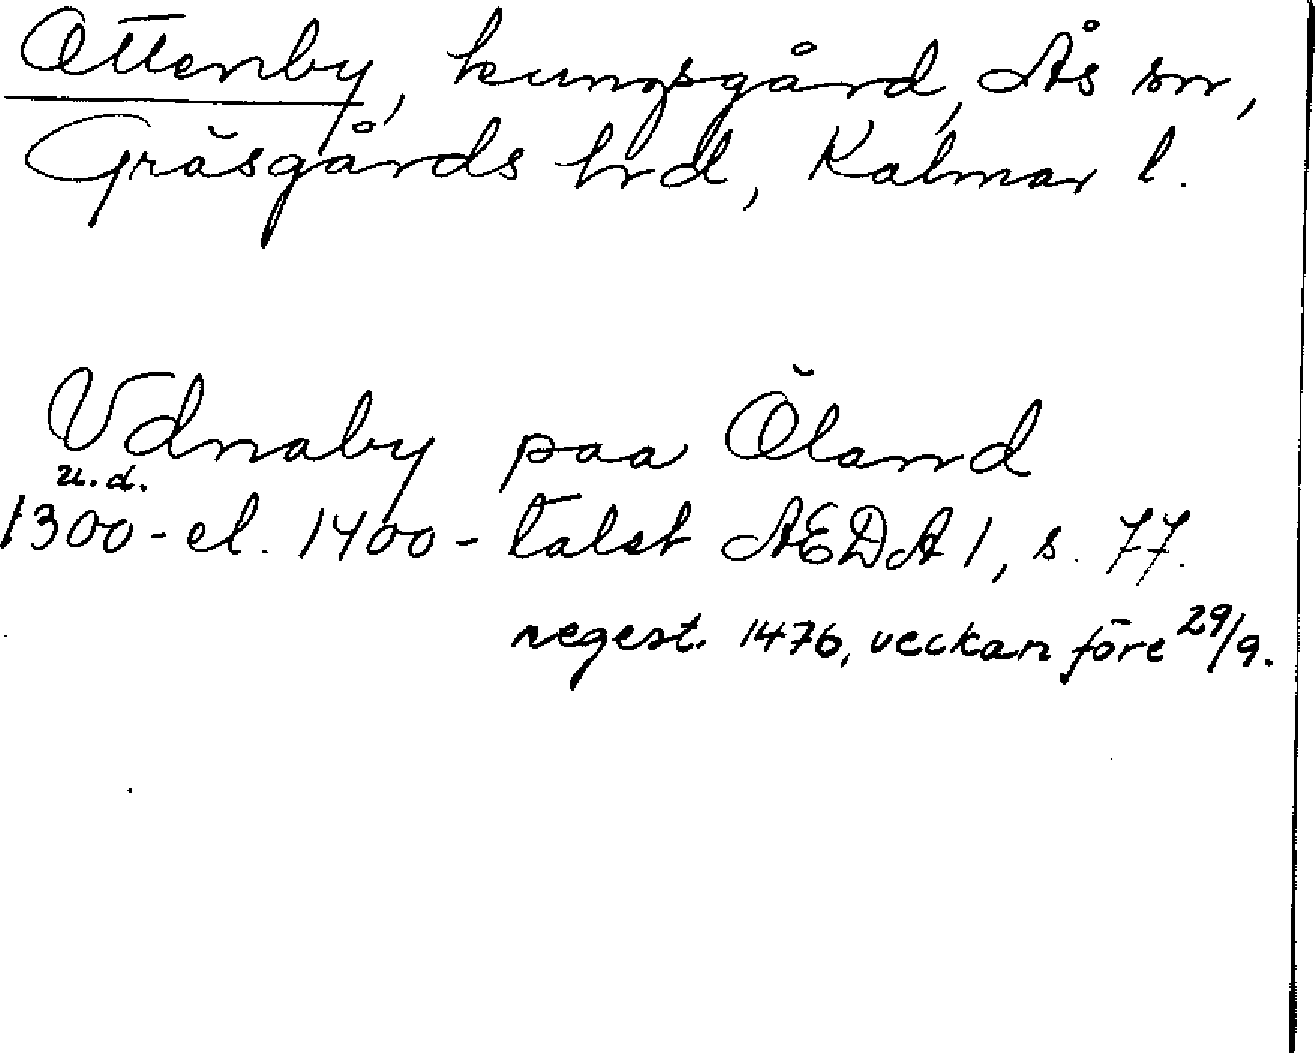 Ottenby, kungsgård, Ås sn,
Gräsgårds hrd, Kalmar l.
Vdnaby paa Öland
u.d.
1300-el. 1400-talet AEDA 1, s. 77.
regest. 1476, veckan före 29/9.